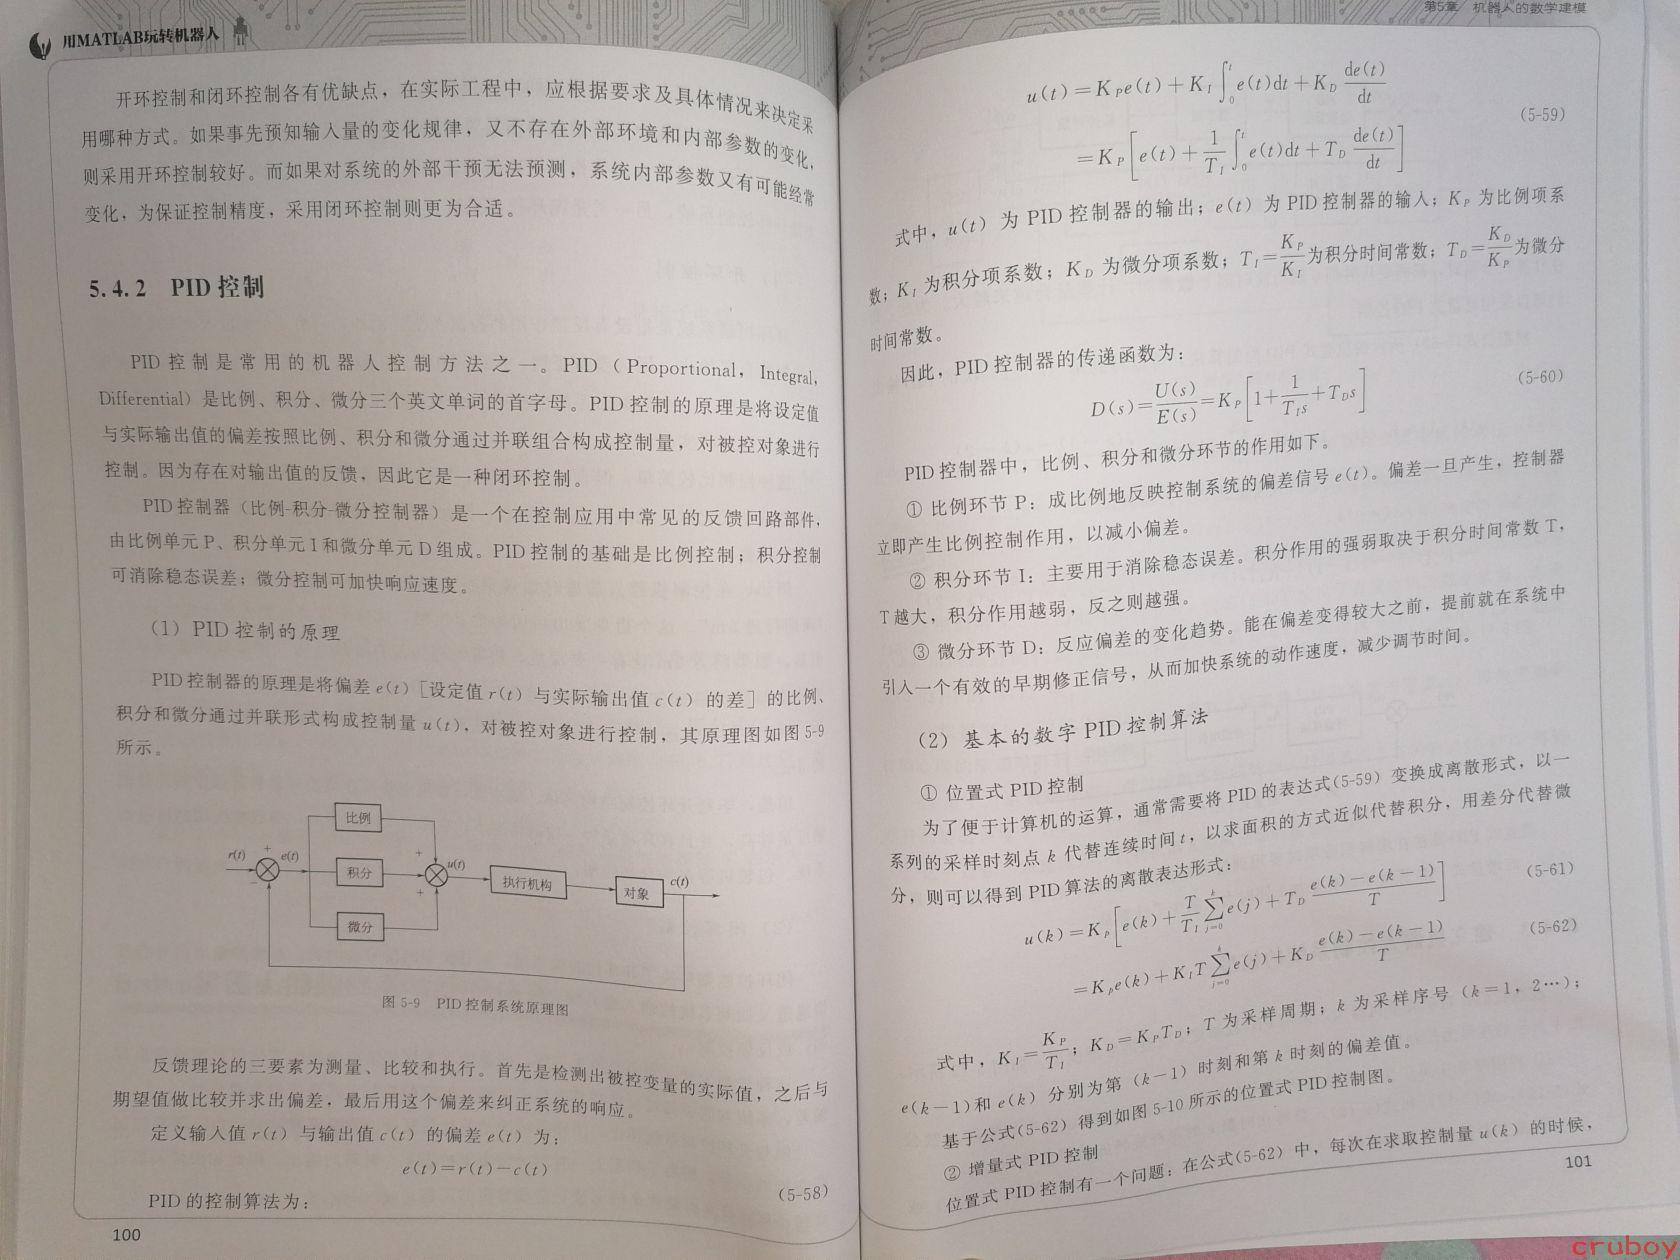 用MATLAB玩转机器人
开环控制和闭环控制各有优缺点，在实际工程中，应根据要求及具体情况来决定采
用哪种方式。如果事先预知输入量的变化规律，又不存在外部环境和内部参数的变化，
则采用开环控制较好。而如果对系统的外部干预无法预测，系统内部参数又有可能经常
变化，为保证控制精度，采用闭环控制则更为合适。
5.4.2 PID 控制
PID 控制是常用的机器人控制方法之一。PID（Proportional，Integral，
Differential）是比例、积分、微分三个英文单词的首字母。PID 控制的原理是将设定值
与实际输出值的偏差按照比例、积分和微分通过并联组合构成控制量，对被控对象进行
控制。因为存在对输出值的反馈，因此它是一种闭环控制。
PID 控制器（比例-积分-微分控制器）是一个在控制应用中常见的反馈回路部件，
由比例单元 P、积分单元 I 和微分单元 D 组成。PID 控制的基础是比例控制；积分控制
可消除稳态误差；微分控制可加快响应速度。
（1）PID 控制的原理
PID 控制器的原理是将偏差 e(t)［设定值 r(t) 与实际输出值 c(t) 的差］的比例、
积分和微分通过并联形式构成控制量 u(t)，对被控对象进行控制，其原理图如图 5-9
所示。
比例
r(t) + e(t) + u(t) c(t)
积分 执行机构 对象
− +
微分
图 5-9 PID 控制系统原理图
反馈理论的三要素为测量、比较和执行。首先是检测出被控变量的实际值，之后与
期望值做比较并求出偏差，最后用这个偏差来纠正系统的响应。
定义输入值 r(t) 与输出值 c(t) 的偏差 e(t) 为：
e(t)=r(t)−c(t) (5-58)
PID 的控制算法为：
100
第5章 机器人的数学建模
u(t)=K_P e(t)+K_I∫_0^t e(t)dt+K_D de(t)/dt
(5-59)
=K_P[e(t)+1/T_I ∫_0^t e(t)dt+T_D de(t)/dt]
式中，u(t) 为 PID 控制器的输出；e(t) 为 PID 控制器的输入；K_P 为比例项系
数；K_I 为积分项系数；K_D 为微分项系数；T_I=K_P/K_I 为积分时间常数；T_D=K_D/K_P 为微分
时间常数。
因此，PID 控制器的传递函数为：
D(s)=U(s)/E(s)=K_P[1+1/(T_I s)+T_D s] (5-60)
PID 控制器中，比例、积分和微分环节的作用如下。
① 比例环节 P：成比例地反映控制系统的偏差信号 e(t)。偏差一旦产生，控制器
立即产生比例控制作用，以减小偏差。
② 积分环节 I：主要用于消除稳态误差。积分作用的强弱取决于积分时间常数 T，
T 越大，积分作用越弱，反之则越强。
③ 微分环节 D：反应偏差的变化趋势。能在偏差变得较大之前，提前就在系统中
引入一个有效的早期修正信号，从而加快系统的动作速度，减少调节时间。
（2）基本的数字 PID 控制算法
① 位置式 PID 控制
为了便于计算机的运算，通常需要将 PID 的表达式(5-59) 变换成离散形式，以一
系列的采样时刻点 k 代替连续时间 t，以求面积的方式近似代替积分，用差分代替微
分，则可以得到 PID 算法的离散表达形式：
u(k)=K_P[e(k)+T/T_I ∑_{j=0}^k e(j)+T_D (e(k)−e(k−1))/T] (5-61)
=K_P e(k)+K_I T∑_{j=0}^k e(j)+K_D (e(k)−e(k−1))/T (5-62)
式中，K_I=K_P/T_I；K_D=K_P T_D；T 为采样周期；k 为采样序号（k=1，2…）；
e(k−1)和 e(k) 分别为第（k−1）时刻和第 k 时刻的偏差值。
基于公式(5-62) 得到如图 5-10 所示的位置式 PID 控制图。
② 增量式 PID 控制
位置式 PID 控制有一个问题：在公式(5-62) 中，每次在求取控制量 u(k) 的时候，
101
cruboy